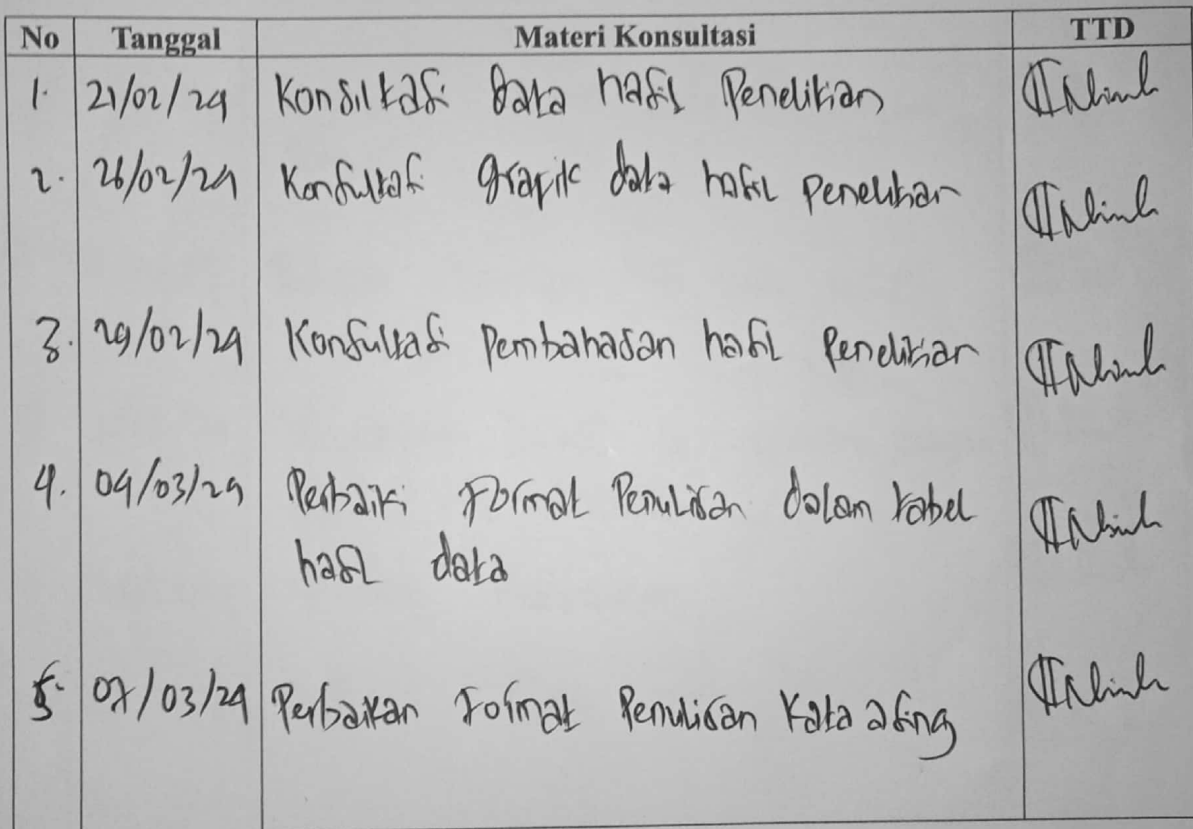 No Tanggal Materi Konsultasi TTD
1. 21/02/24 Konsiltasi data hasil Penelitian
2. 26/02/24 Konsultasi grafik data hasil penelitian
3. 29/02/24 Konsultasi Pembahasan hasil Penelitian
4. 04/03/24 Perbaiki Format Penulisan dalam tabel
hasil data
5. 07/03/24 Perbaikan Format Penulisan Kata asing